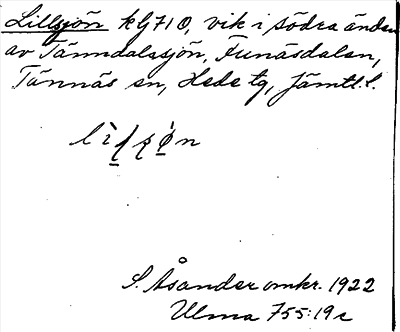 Lillsjön kG710, vik i södra änden
av Tänndalssjön, Funäsdalen,
Tännäs sn, Hede tg, Jämtl. l.
S. Åsander omkr. 1922
Ulma 755:19c